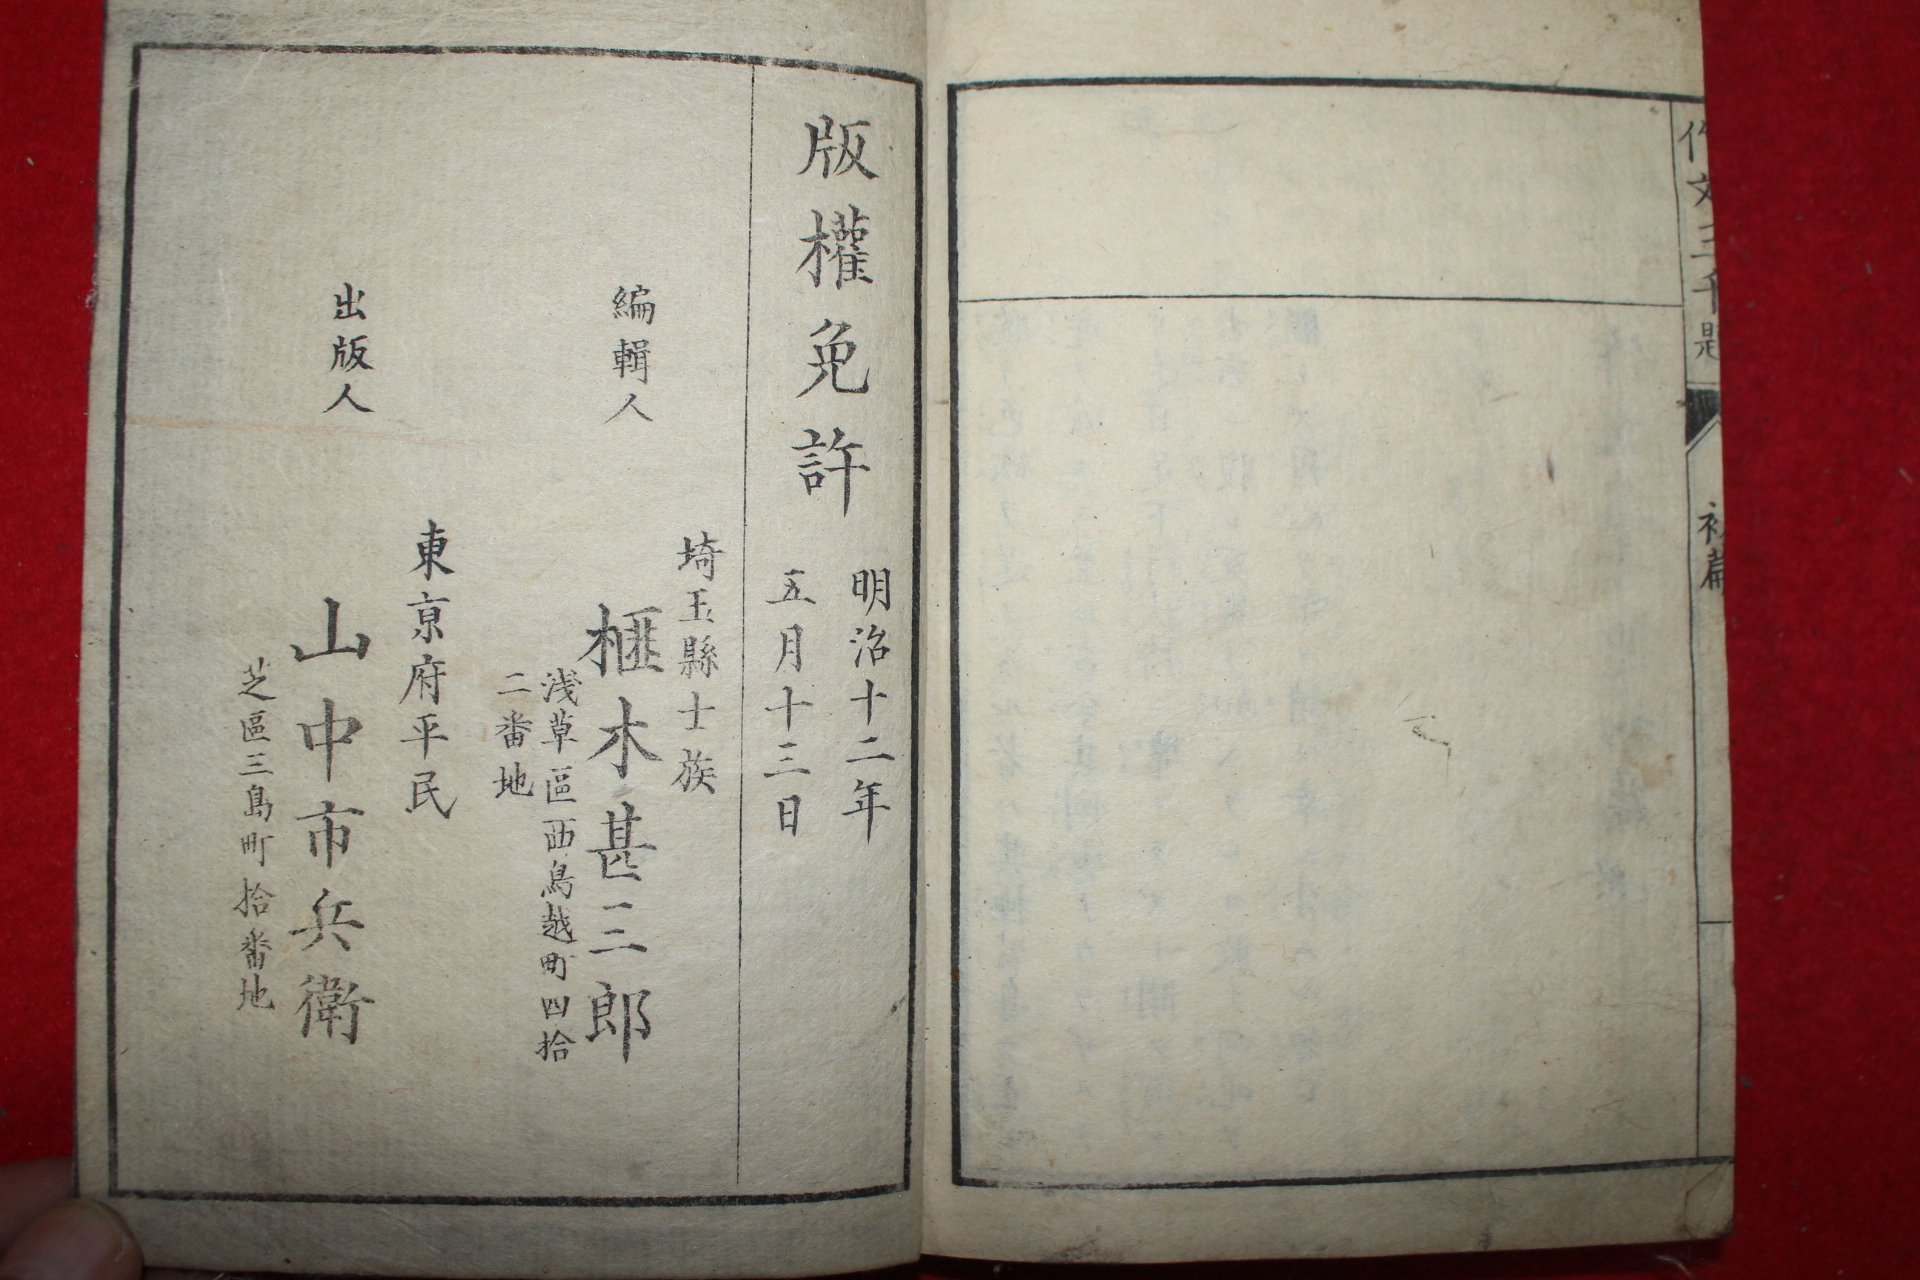 作文三千題
初篇
版權免許
明治十二年
五月十三日
編輯人
埼玉縣士族
榧木甚三郎
浅草區西鳥越町四拾
二番地
出版人
東京府平民
山中市兵衛
芝區三島町拾番地